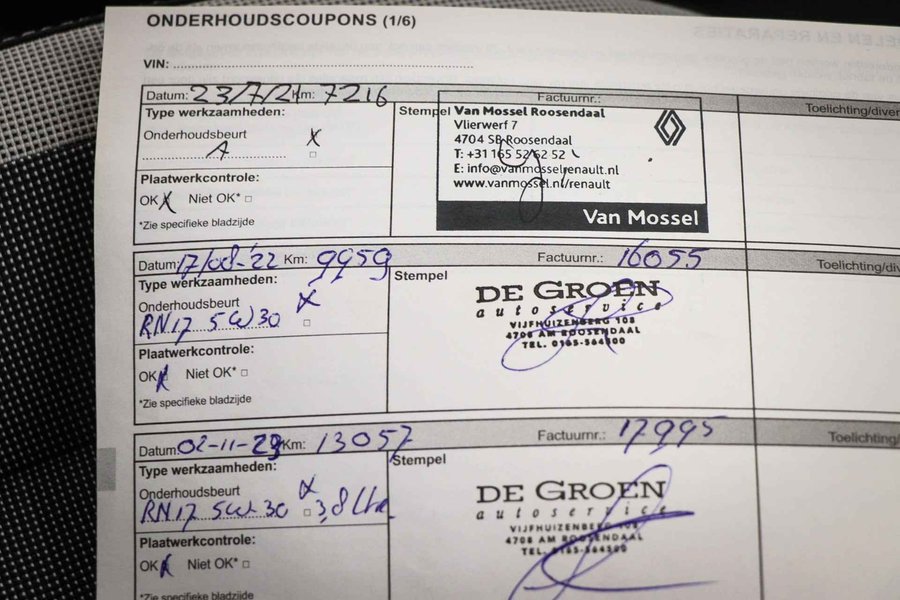 ONDERHOUDSCOUPONS (1/6)
VIN:
Datum: 23/7/21 Km: 7216 Factuurnr.: Toelichting/diver
Type werkzaamheden: Stempel
Onderhoudsbeurt X
A
Plaatwerkcontrole:
OK X Niet OK*
*Zie specifieke bladzijde
Van Mossel Roosendaal
Vlierwerf 7
4704 SB Roosendaal
T: +31 165 52 62 52
E: info@vanmosselrenault.nl
www.vanmossel.nl/renault
Van Mossel
Datum: 17/08/'22 Km: 9959 Factuurnr.: 16055 Toelichting/div
Type werkzaamheden: Stempel
Onderhoudsbeurt X
RN17 5W30
Plaatwerkcontrole:
OK X Niet OK*
*Zie specifieke bladzijde
DE GROEN
autoservice
VIJFHUIZENBERG 108
4708 AM ROOSENDAAL
TEL. 0165-564300
Datum: 02-11-23 Km: 13057 Factuurnr.: 17995 Toelichting/
Type werkzaamheden: Stempel
Onderhoudsbeurt X
RN17 5W30 3,8
Plaatwerkcontrole:
OK X Niet OK*
*Zie specifieke bladzijde
DE GROEN
autoservice
VIJFHUIZENBERG 108
4708 AM ROOSENDAAL
TEL. 0165-564300